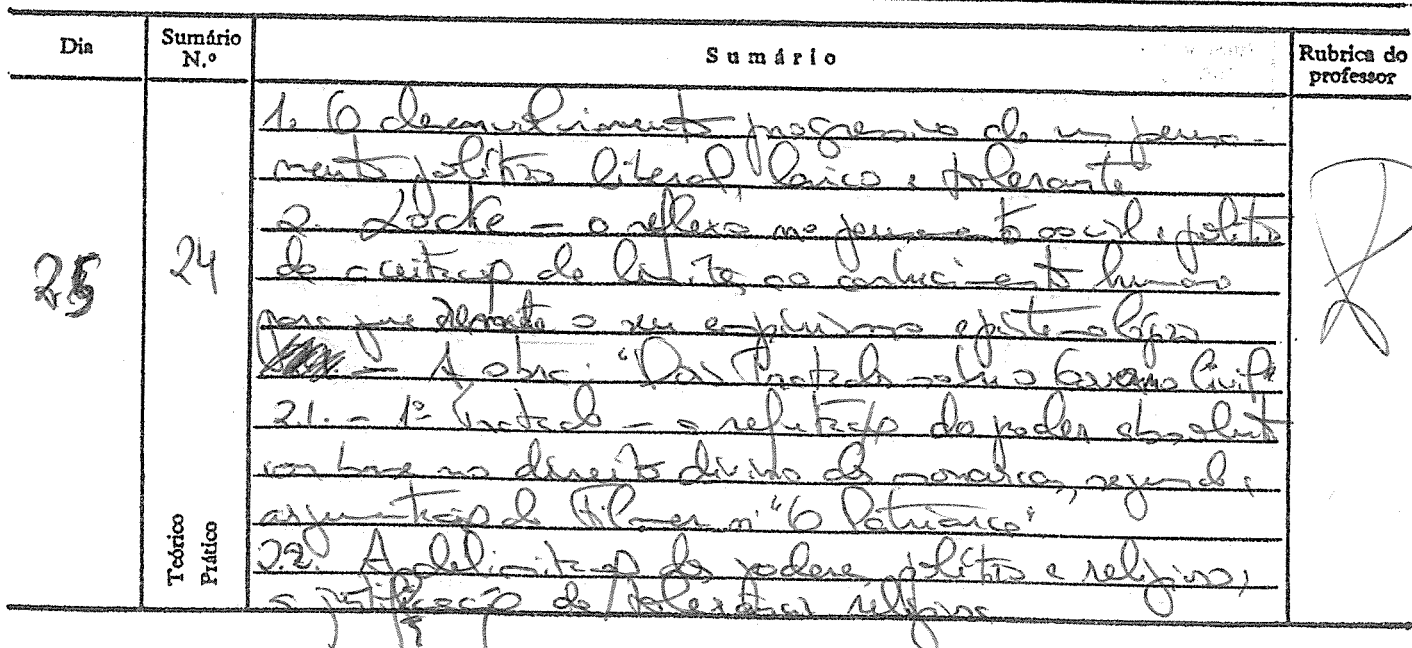 Dia
Sumário
N.º
Sumário
Rubrica do
professor
25
24
Teórico
Prático
1. O desenvolvimento progressivo de um pensa-
mento político liberal, laico e tolerante
2. Locke – o reflexo no pensamento social e político
da aceitação de limites ao conhecimento humano
para que remete o seu empirismo epistemológico
– A obra: "Dois Tratados sobre o Governo Civil"
2.1. – 1º Tratado – a refutação do poder absoluto
com base no direito divino do monarca, segundo a
argumentação de Filmer n'"O Patriarca"
2.2. A delimitação dos poderes político e religioso;
a justificação da tolerância religiosa